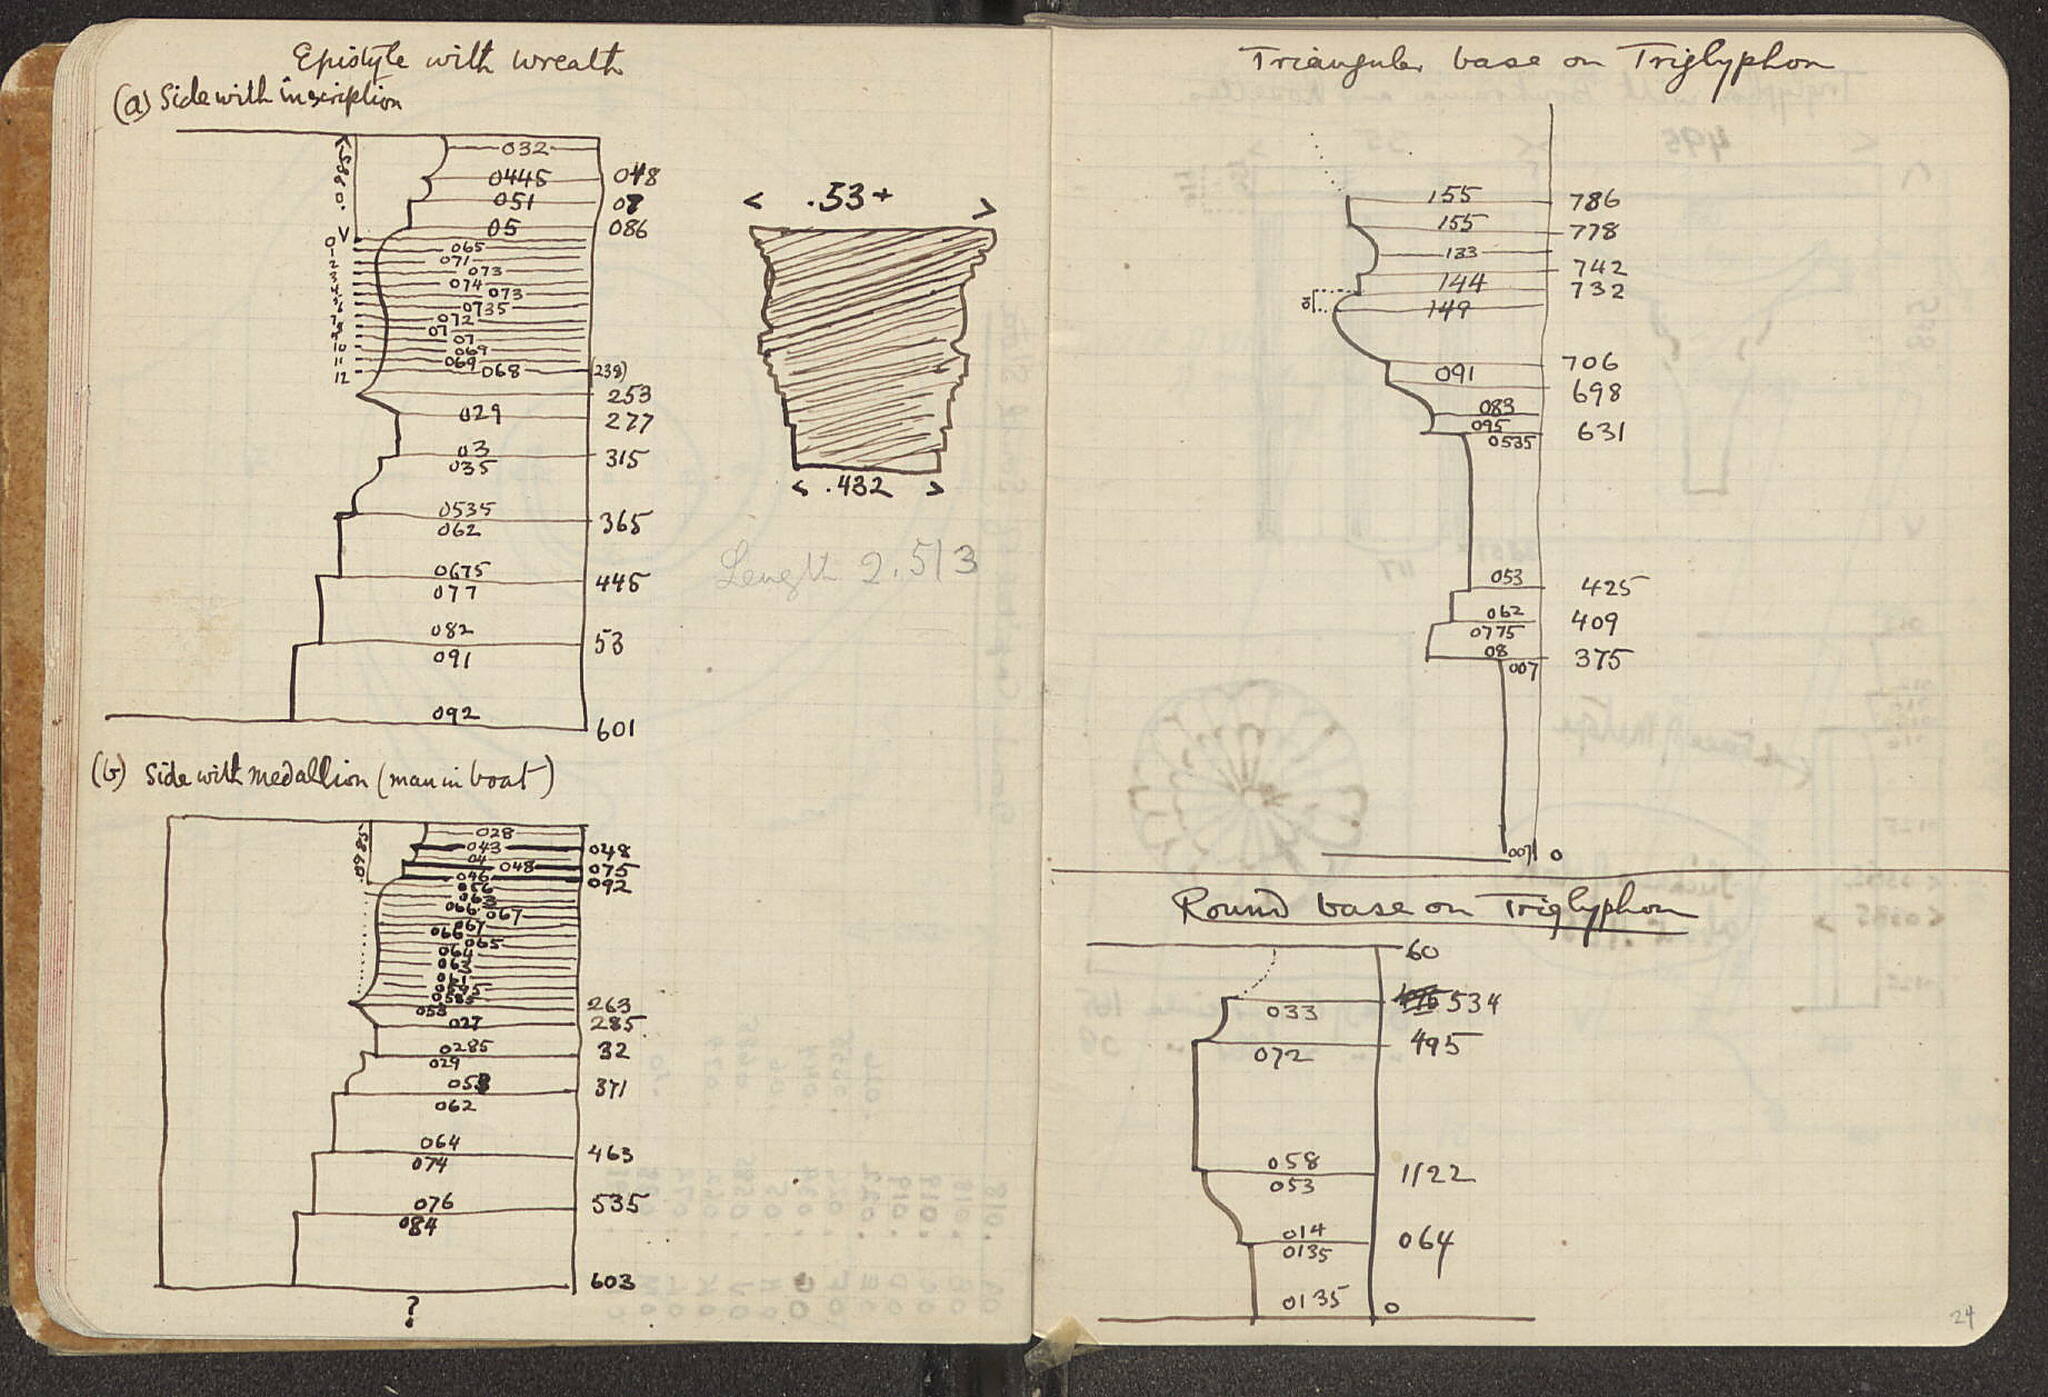 Epistyle with wreath
(a) Side with inscription
032
0445 048
051 07
05 086
0.985
0
1
2
3
4
5
6
7
8
9
10
11
12
065
071
073
074
073
0735
072
07
07
069
069
068 (238)
253
029 277
03 315
035
0535 365
062
0675 445
077
082 53
091
092 601
< .53+ >
< .432 >
Length 2.513
(b) Side with medallion (man in boat)
.0985
028
043 048
04 048 075
046 092
056
063
066 067
067
066 065
064
063
061
0595
0585 263
058
027 285
0285 32
029
053 371
062
064 463
074
076 535
084
603
?
Triangular base on Triglyphon
155 786
155 778
133
742
144 732
149
706
091 698
083
095 631
0535
053 425
062 409
0775
08 375
007
007 0
Round base on Triglyphon
60
033 534
072 495
058 1/22
053
014 064
0135
0135 0
24